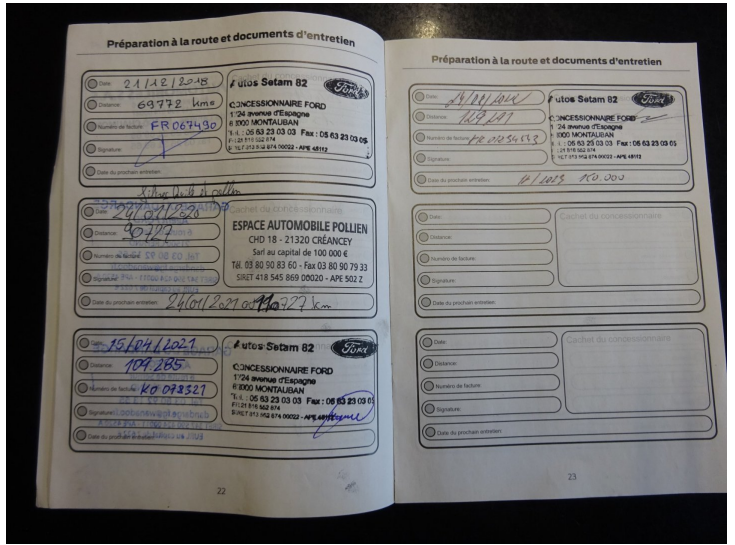 Préparation à la route et documents d'entretien
Date: 21/12/2018
Distance: 69772 kms
Numéro de facture: FR067490
Signature:
Date du prochain entretien:
Autos Setam 82
Ford
CONCESSIONNAIRE FORD
1724 avenue d'Espagne
82000 MONTAUBAN
Tél. : 05 63 23 03 03 Fax : 05 63 23 03 05
Date: 24/01/2020
Distance: 90727
Numéro de facture:
Signature:
Date du prochain entretien: 24/01/2021 ou 110727 km
Cachet du concessionnaire
ESPACE AUTOMOBILE POLLIEN
CHD 18 - 21320 CRÉANCEY
Sarl au capital de 100 000 €
Tél. 03 80 90 83 60 - Fax 03 80 90 79 33
SIRET 418 545 869 00020 - APE 502 Z
Date: 15/04/2021
Distance: 109.285
Numéro de facture: KO 078321
Signature:
Date du prochain entretien:
Autos Setam 82
Ford
CONCESSIONNAIRE FORD
1724 avenue d'Espagne
82000 MONTAUBAN
Tél. : 05 63 23 03 03 Fax : 05 63 23 03 05
22
Préparation à la route et documents d'entretien
Date:
Distance:
Numéro de facture:
Signature:
Date du prochain entretien:
Autos Setam 82
Ford
CONCESSIONNAIRE FORD
1724 avenue d'Espagne
82000 MONTAUBAN
Tél. : 05 63 23 03 03 Fax : 05 63 23 03 05
Date:
Distance:
Numéro de facture:
Signature:
Date du prochain entretien:
Cachet du concessionnaire
Date:
Distance:
Numéro de facture:
Signature:
Date du prochain entretien:
Cachet du concessionnaire
23